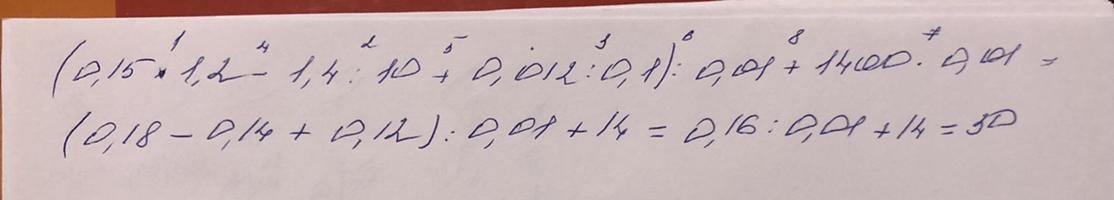 (0,15 · 1,2 - 1,4 : 10 + 0,012 : 0,1) : 0,01 + 1400 · 0,01 =
(0,18 - 0,14 + 0,12) : 0,01 + 14 = 0,16 : 0,01 + 14 = 30